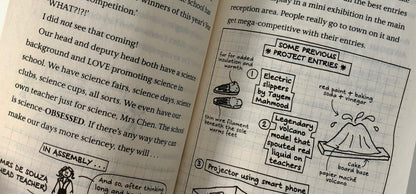 winners of this year's
competition.'
'WHAT?!?!'
I did not see that coming!
Our head and deputy head both have a science
background and LOVE promoting science in
school. We have science fairs, science days, science
clubs, science cups, all sorts. We even have our
own teacher just for science, Mrs Chen. The school
is science OBSESSED. If there's any way they can
make our days more sciencey, they will . . .
IN ASSEMBLY...
MRS DE SOUZA
(HEAD TEACHER)
And so, after thinking
long and
the best entries
display in a mini exhibition in the main
reception area. People really go to town on it and
get mega-competitive with their entries.
SOME PREVIOUS
PROJECT ENTRIES
fur for added
insulation and
warmth
1 Electric
slippers
by
Tayem
Mahmood
thin wire filament
beneath the sole
warms feet
red paint + baking
soda + vinegar
2 Legendary
volcano
model that
spouted red
liquid on
teachers
cake
board base
papier mâché
volcano
3 Projector using smart phone